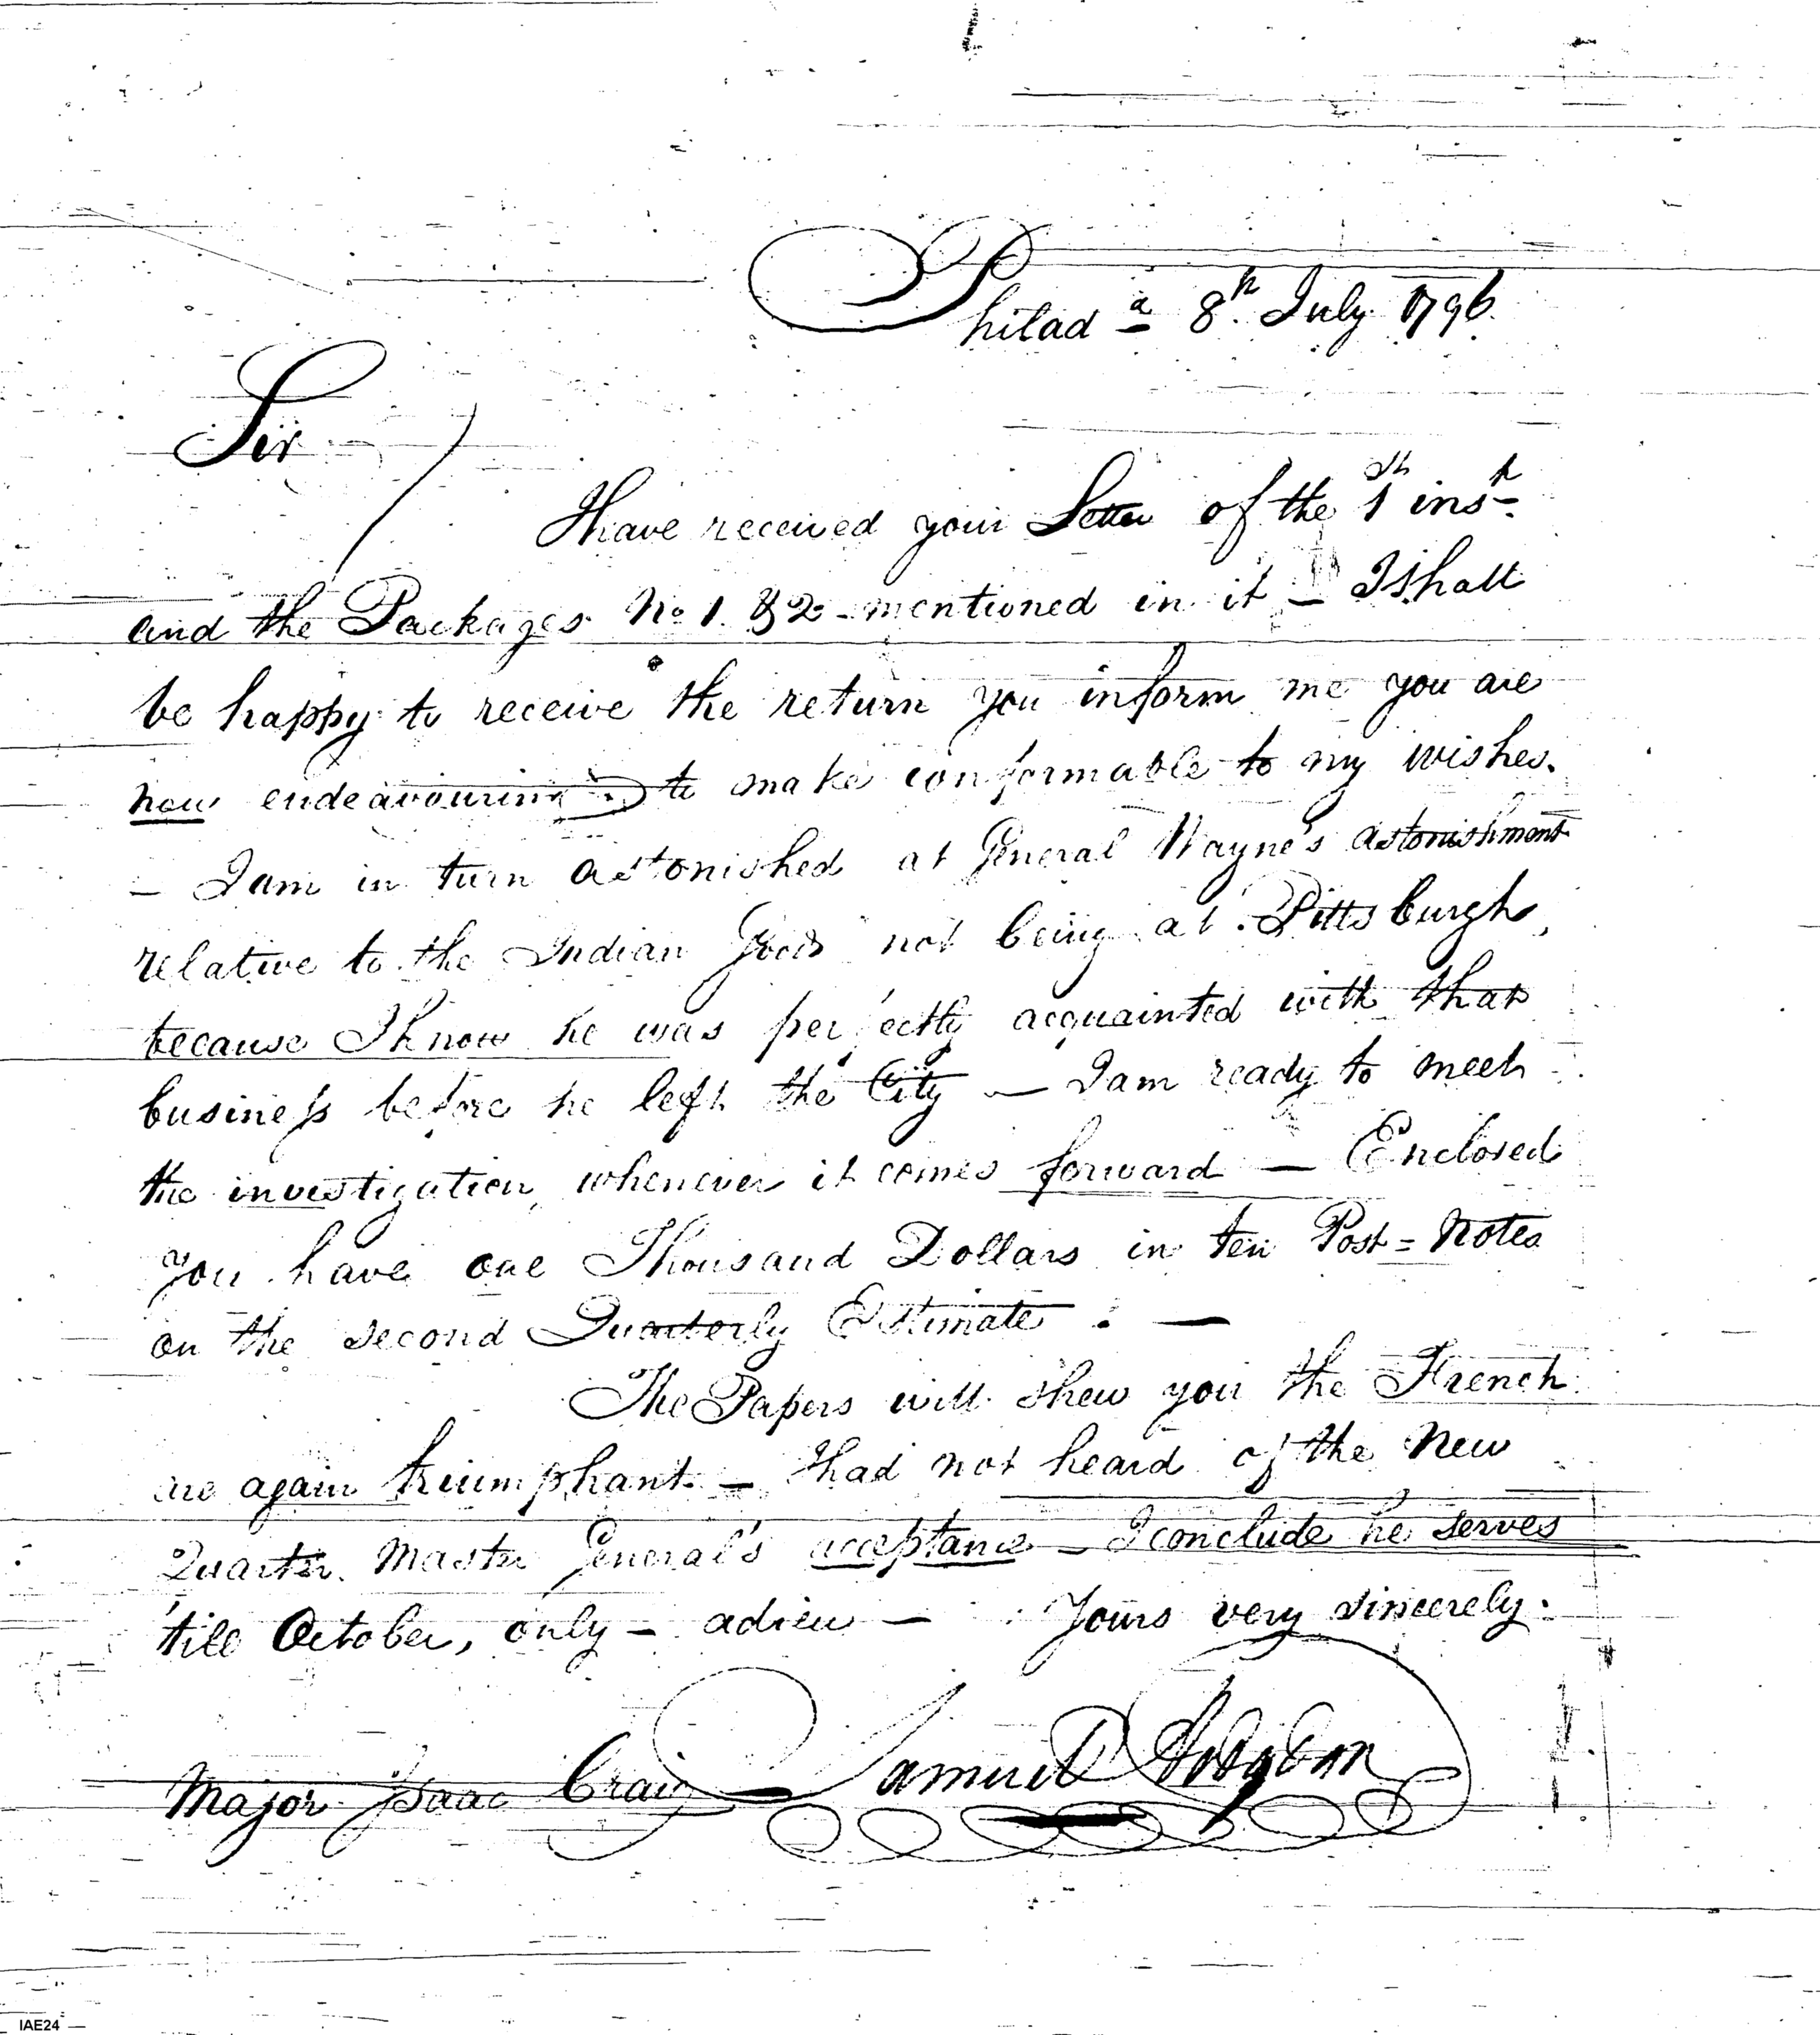 Philada 8th July 1796.
Sir
I have received your Letter of the 1st inst
and the Packages No 1. & 2 - mentioned in it — I shall
be happy to receive the return you inform me you are
now endeavouring to make conformable to my wishes.
— I am in turn astonished at General Wayne's astonishment
relative to the Indian Goods not being at Pittsburgh,
because I know he was perfectly acquainted with that
business before he left the City — I am ready to meet
the investigation, whenever it comes forward — Enclosed
you have one Thousand Dollars in ten Post = Notes
on the second Quarterly Estimate : —
The Papers will shew you the French
are again triumphant — I had not heard of the New
Quarter Master General's acceptance — I conclude he serves
'till October, only — adieu — Yours very sincerely.
Samuel Hodgdon
Major Isaac Craig
IAE24